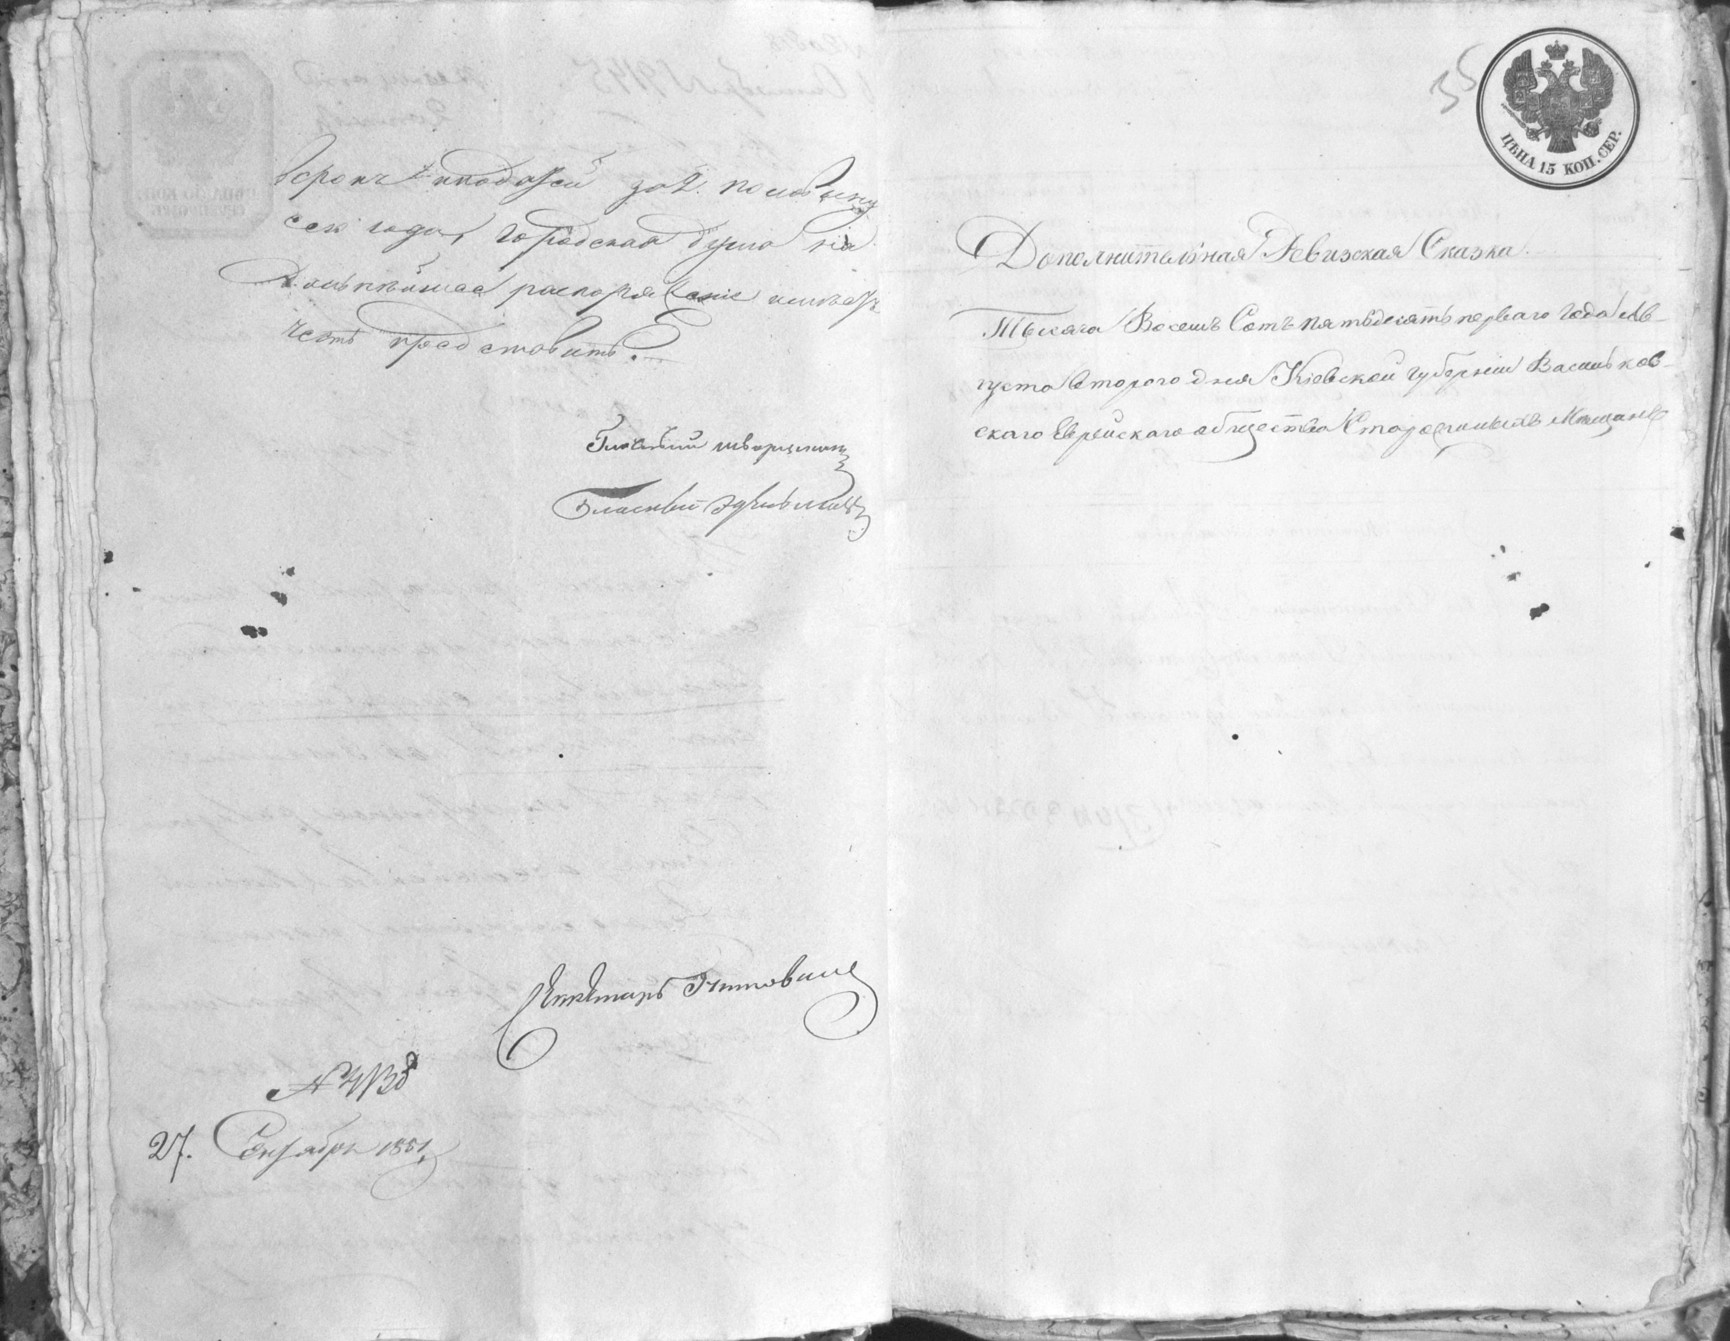 въ срокъ податей за 2. половину
сего года, Городская Дума на
дальнѣйшее распоряженіе имѣетъ
честь представить.
Гласный
Гласный
Секретарь
№
27. Сентября 1851
35
ЦѢНА 15 КОП. СЕР.
Дополнительная Ревизская Сказка
Тысяча Восемь Сотъ пятьдесятъ перваго Года Ав-
густа второго дня Кіевской Губерніи Васильков-
скаго Еврейскаго общества Мѣщанъ